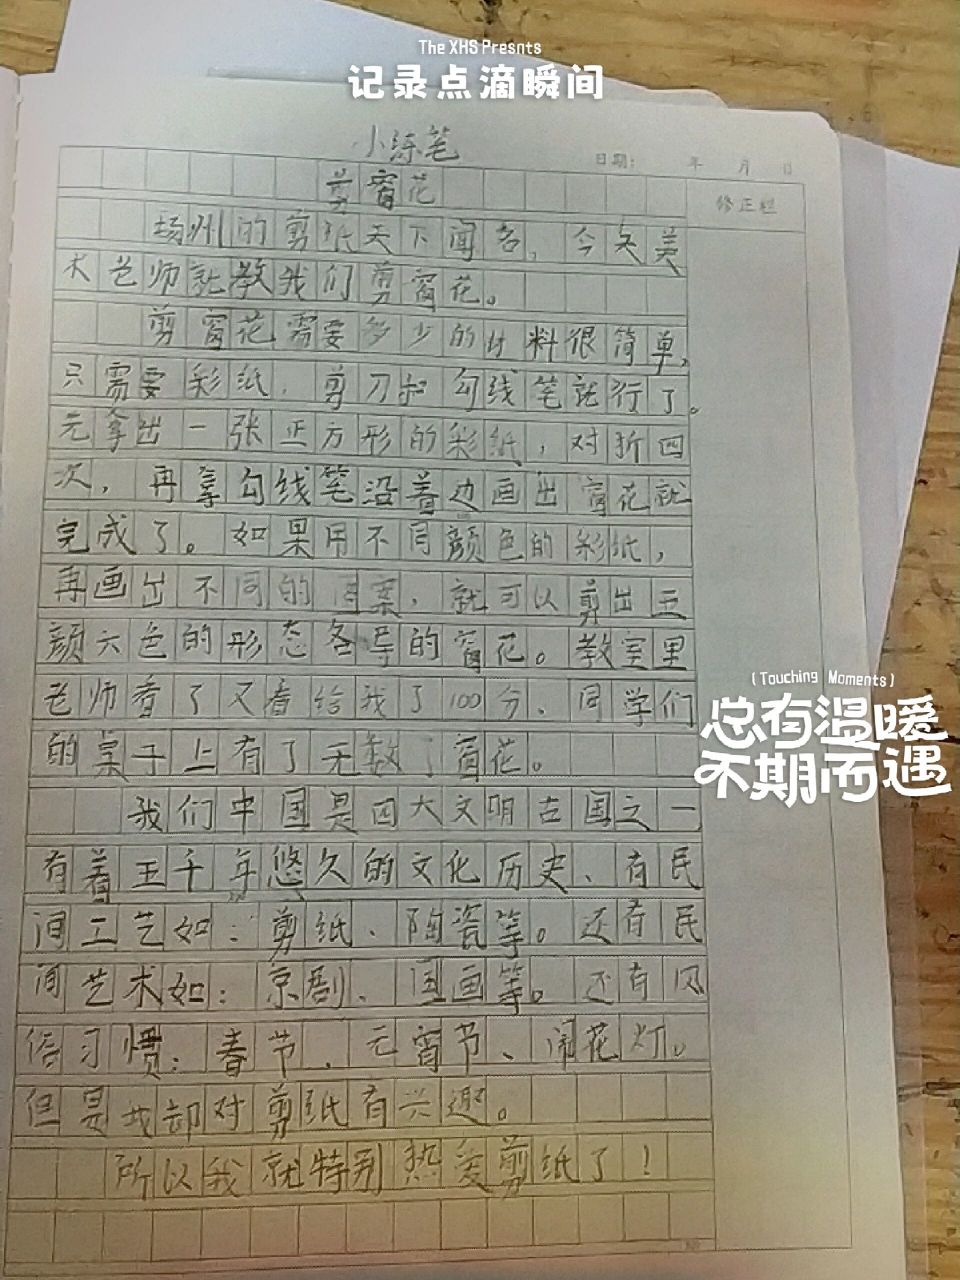 The XHS Presnts
记录点滴瞬间
小练笔
日期: 年 月 日
剪窗花
修正栏
扬州的剪纸天下闻名,今天美
术老师就教我们剪窗花。
剪窗花需要多少的材料很简单,
只需要彩纸、剪刀和勾线笔就行了。
先拿出一张正方形的彩纸,对折四
次,再拿勾线笔沿着边画出窗花就
完成了。如果用不同颜色的彩纸,
再画出不同的图案,就可以剪出五
颜六色的形态各异的窗花。教室里
老师看了又看给我了100分、同学们
的桌子上有了无数了窗花。
我们中国是四大文明古国之一
有着五千年悠久的文化历史、有民
间工艺如:剪纸、陶瓷等。还有民
间艺术如:京剧、国画等。还有风
俗习惯:春节、元宵节、闹花灯。
但是我却对剪纸有兴趣。
所以我就特别热爱剪纸了!
(Touching Moments)
总有温暖
不期而遇